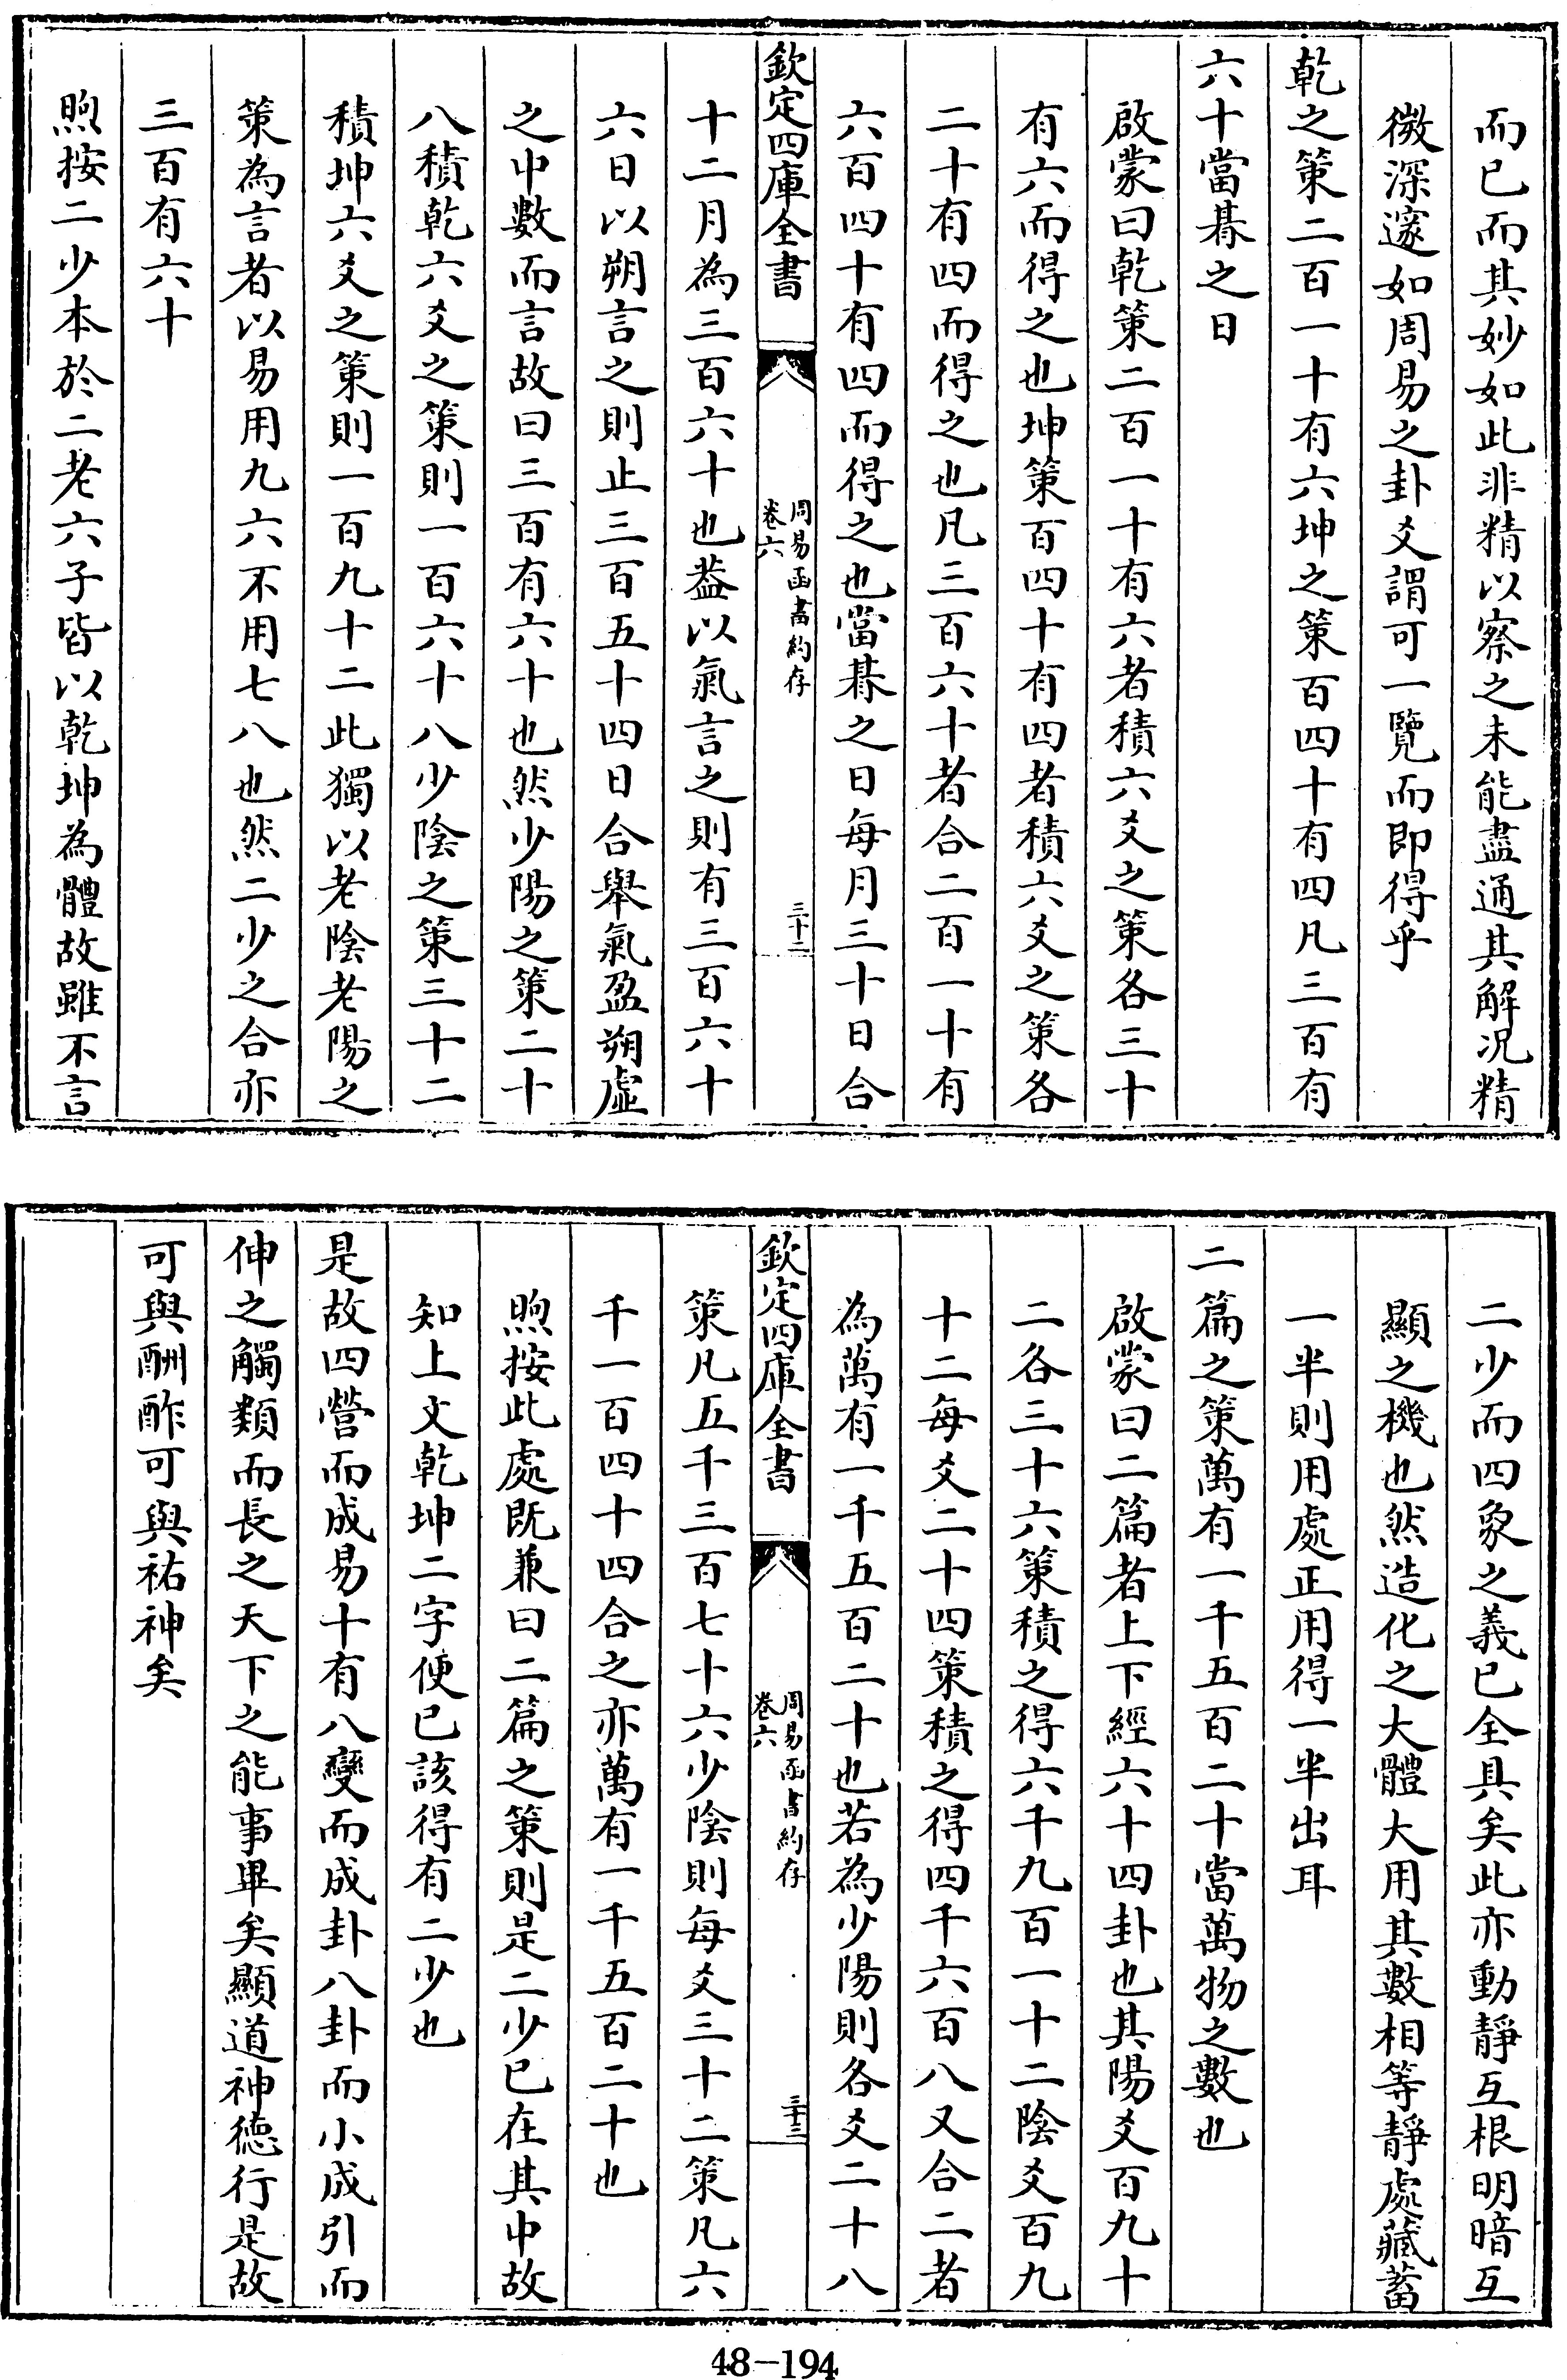 而已而其妙如此非精以察之未能盡通其解况精
微深邃如周易之卦爻謂可一覽而即得乎
乾之策二百一十有六坤之策百四十有四凡三百有
六十當朞之日
啟蒙曰乾策二百一十有六者積六爻之策各三十
有六而得之也坤策百四十有四者積六爻之策各
二十有四而得之也凡三百六十者合二百一十有
六百四十有四而得之也當朞之日每月三十日合
欽定四庫全書
周易函書約存
卷六
三十二
十二月為三百六十也葢以氣言之則有三百六十
六日以朔言之則止三百五十四日合舉氣盈朔虛
之中數而言故曰三百有六十也然少陽之策二十
八積乾六爻之策則一百六十八少陰之策三十二
積坤六爻之策則一百九十二此獨以老陰老陽之
策為言者以易用九六不用七八也然二少之合亦
三百有六十
煦按二少本於二老六子皆以乾坤為體故雖不言
二少而四象之義已全具矣此亦動靜互根明暗互
顯之機也然造化之大體大用其數相等靜處藏蓄
一半則用處正用得一半出耳
二篇之策萬有一千五百二十當萬物之數也
啟蒙曰二篇者上下經六十四卦也其陽爻百九十
二各三十六策積之得六千九百一十二陰爻百九
十二每爻二十四策積之得四千六百八又合二者
為萬有一千五百二十也若為少陽則各爻二十八
欽定四庫全書
周易函書約存
卷六
三十三
策凡五千三百七十六少陰則每爻三十二策凡六
千一百四十四合之亦萬有一千五百二十也
煦按此處既兼曰二篇之策則是二少已在其中故
知上文乾坤二字便已該得有二少也
是故四營而成易十有八變而成卦八卦而小成引而
伸之觸類而長之天下之能事畢矣顯道神德行是故
可與酬酢可與祐神矣
48-194